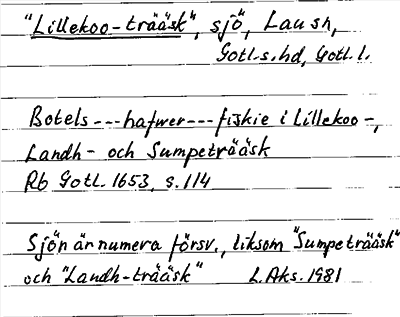 "Lillekoo-trääsk", sjö, Lau sn,
Gotl.s.hd, Gotl.l.
Botels ---hafwer--- fiskie i Lillekoo-,
Landh- och Sumpeträäsk
Rb Gotl. 1653, s. 114
Sjön är numera försv., liksom "Sumpeträäsk"
och "Landh-trääsk" L. Aks. 1981